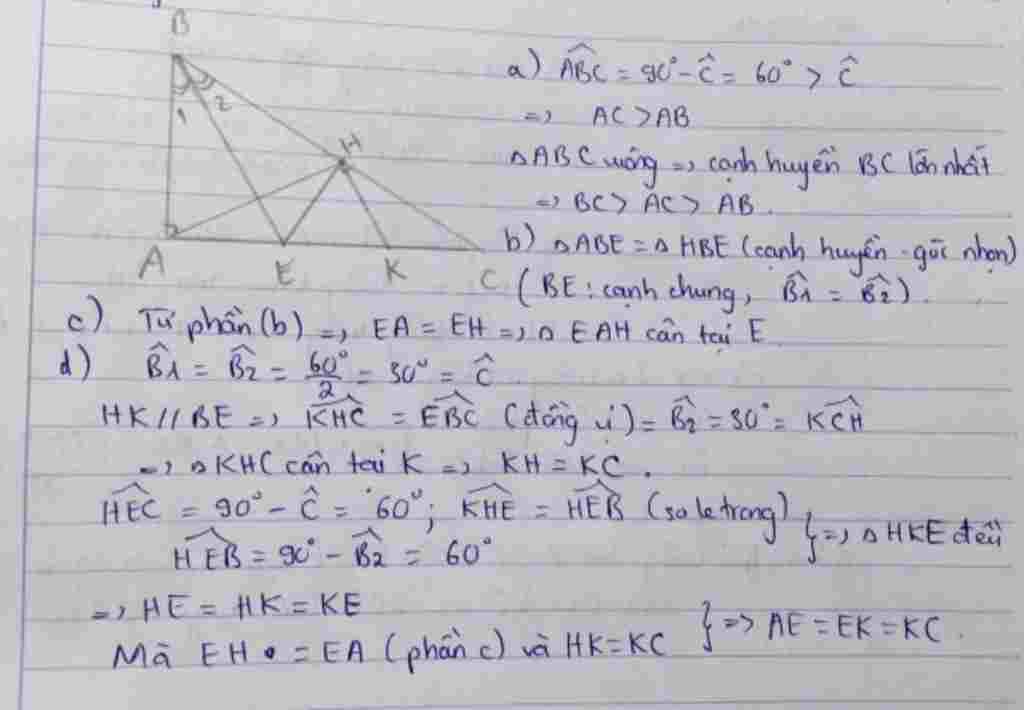 B
1 2
H
A E K C
a) \widehat{ABC} = 90° - Ĉ = 60° > Ĉ
=> AC > AB
△ABC vuông => cạnh huyền BC lớn nhất
=> BC > AC > AB.
b) △ABE = △HBE (cạnh huyền - góc nhọn)
(BE: cạnh chung, \widehat{B1} = \widehat{B2}).
c) Từ phần (b) => EA = EH => △EAH cân tại E
d) \widehat{B1} = \widehat{B2} = \frac{60°}{2} = 30° = Ĉ.
HK // BE => \widehat{KHC} = \widehat{EBC} (đồng vị) = \widehat{B2} = 30° = \widehat{KCH}
=> △KHC cân tại K => KH = KC.
\widehat{HEC} = 90° - Ĉ = 60°; \widehat{KHE} = \widehat{HEB} (so le trong)
\widehat{HEB} = 90° - \widehat{B2} = 60° } => △HKE đều
=> HE = HK = KE
Mà EH = EA (phần c) và HK = KC } => AE = EK = KC.